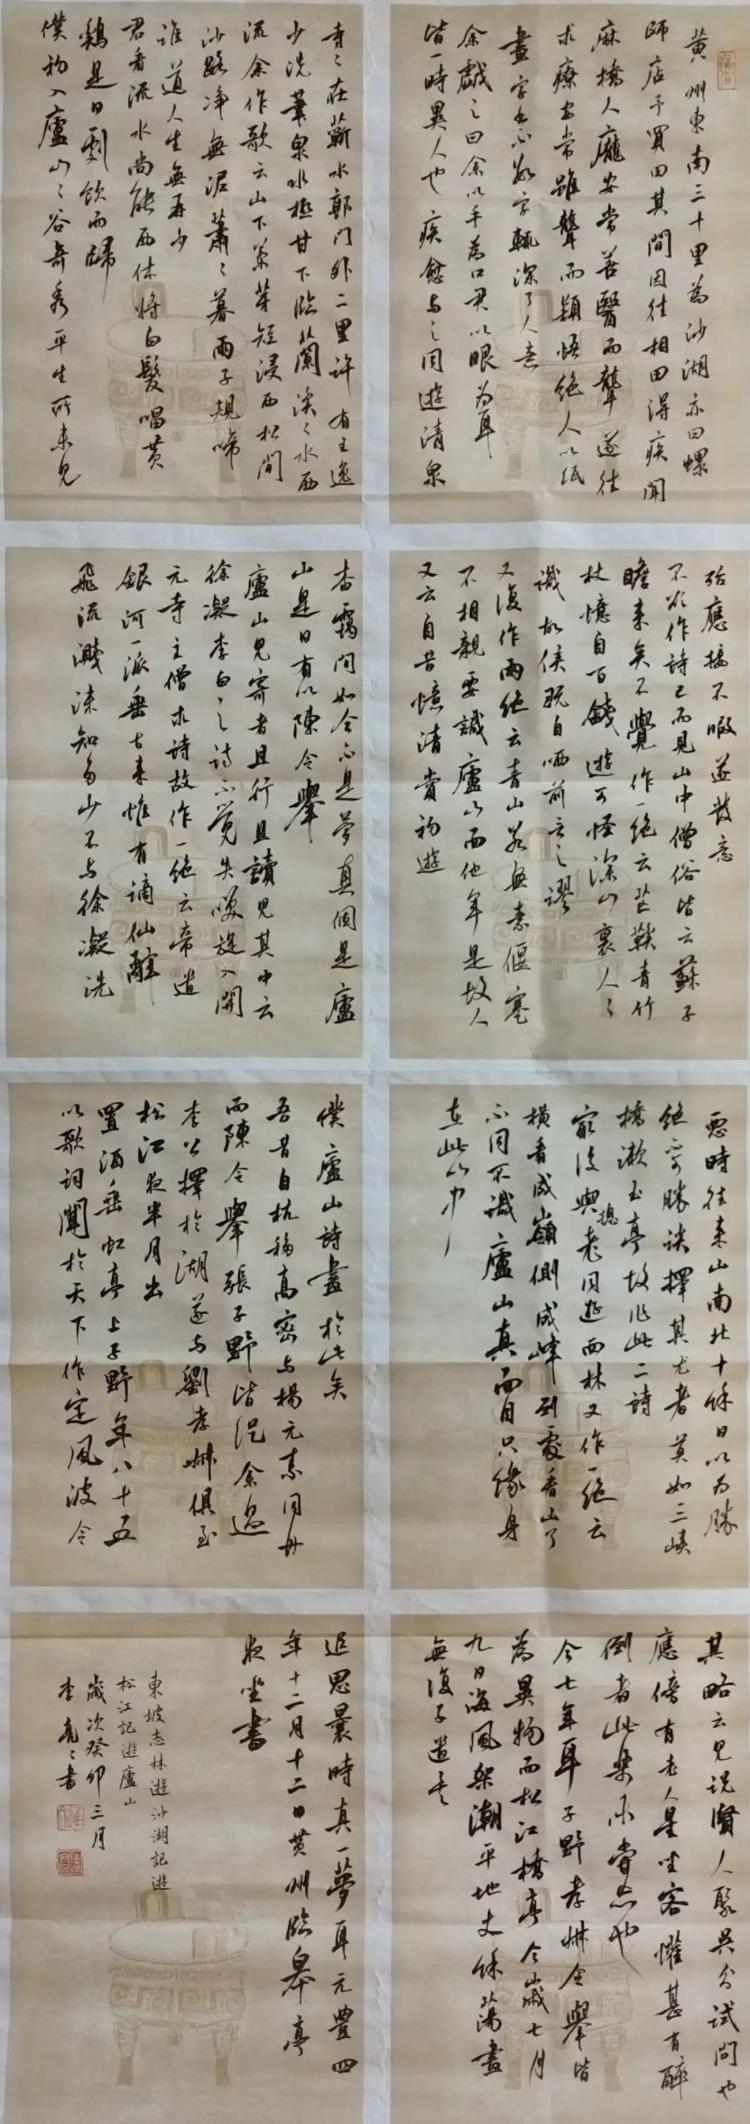 黄州東南三十里為沙湖亦曰螺
師店予買田其間因往相田得疾聞
麻橋人龐安常善醫而聾遂往
求療安常雖聾而穎悟絶人以紙
畫字書不數字輒深了人意
余戲之曰余以手為口君以眼為耳
皆一時異人也疾愈與之同遊清泉
寺寺在蘄水郭門外二里許有王逸
少洗筆泉水極甘下臨蘭溪溪水西
流余作歌云山下蘭芽短浸西松間
沙路净無泥蕭蕭暮雨子規啼
誰道人生無再少
君看流水尚能西休將白髮唱黄
鷄是日劇飲而歸
僕初入廬山山谷奇秀平生所未見
殆應接不暇遂發意
不欲作詩已而見山中僧俗皆云蘇子
瞻来矣不覺作一絶云芒鞵青竹
杖憶自百錢遊可怪深山裏人人
識故侯既自哂前言之謬
又復作兩絶云青山若無素偃蹇
不相親要識廬山面他年是故人
又云自昔憶清賞初遊
杳靄間如今不是夢真個是廬
山是日有以陳令舉
廬山見寄者且行且讀見其中云
徐凝李白之詩不覺失咲旋入開
元寺主僧求詩故作一絶云帝遣
銀河一派垂古来惟有謫仙辭
飛流濺沫知多少不与徐凝洗
惡時往来山南北十餘日以為勝
絶不可勝談擇其尤者莫如三峡
橋漱玉亭故作此二詩
最後與揔老同遊西林又作一絶云
橫看成嶺側成峰到處看山了
不同不識廬山真面目只緣身
在此山中
僕廬山詩盡於此矣
吾昔自杭移高密与楊元素同舟
而陳令舉張子野皆從余過
李公擇於湖遂与劉孝叔俱至
松江夜半月出
置酒垂虹亭上子野年八十五
以歌詞聞於天下作定風波令
其略云見説賢人聚吴分試問也
應傍有老人星坐客懽甚有醉
倒者此樂未嘗忘也
今七年耳子野孝叔令舉皆
為異物而松江橋亭今歲七月
九日海風架潮平地丈餘蕩盡
無復孑遺矣
追思曩時真一夢耳元豐四
年十二月十二日黄州臨皋亭
夜坐書
東坡志林遊沙湖記遊
松江記遊廬山
歲次癸卯三月
李亮之書